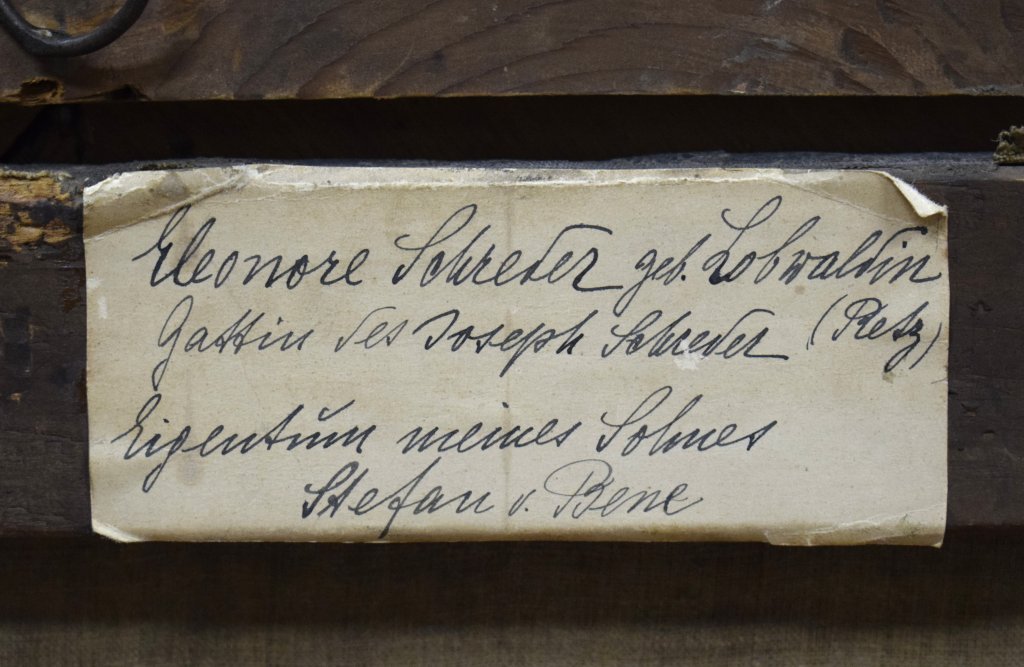 Eleonore Schreder geb. Lobwaldin
Gattin des Joseph Schreder (Retz)
Eigentum meines Sohnes
Stefan v. Bene